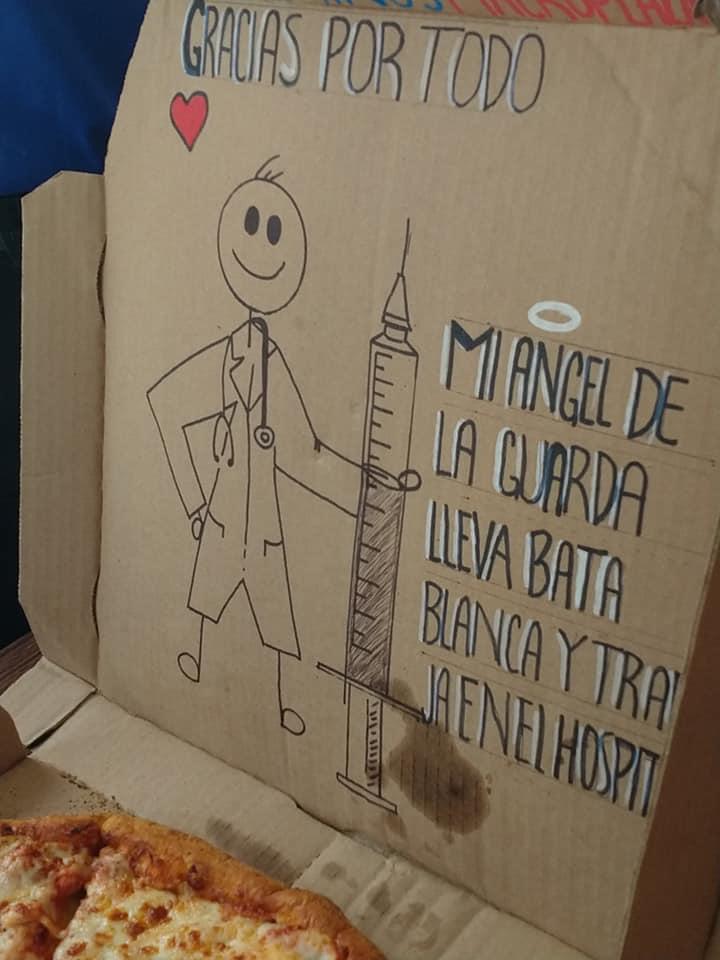 GRACIAS POR TODO
MI ANGEL DE
LA GUARDA
LLEVA BATA
BLANCA Y TRA
JA EN EL HOSPIT